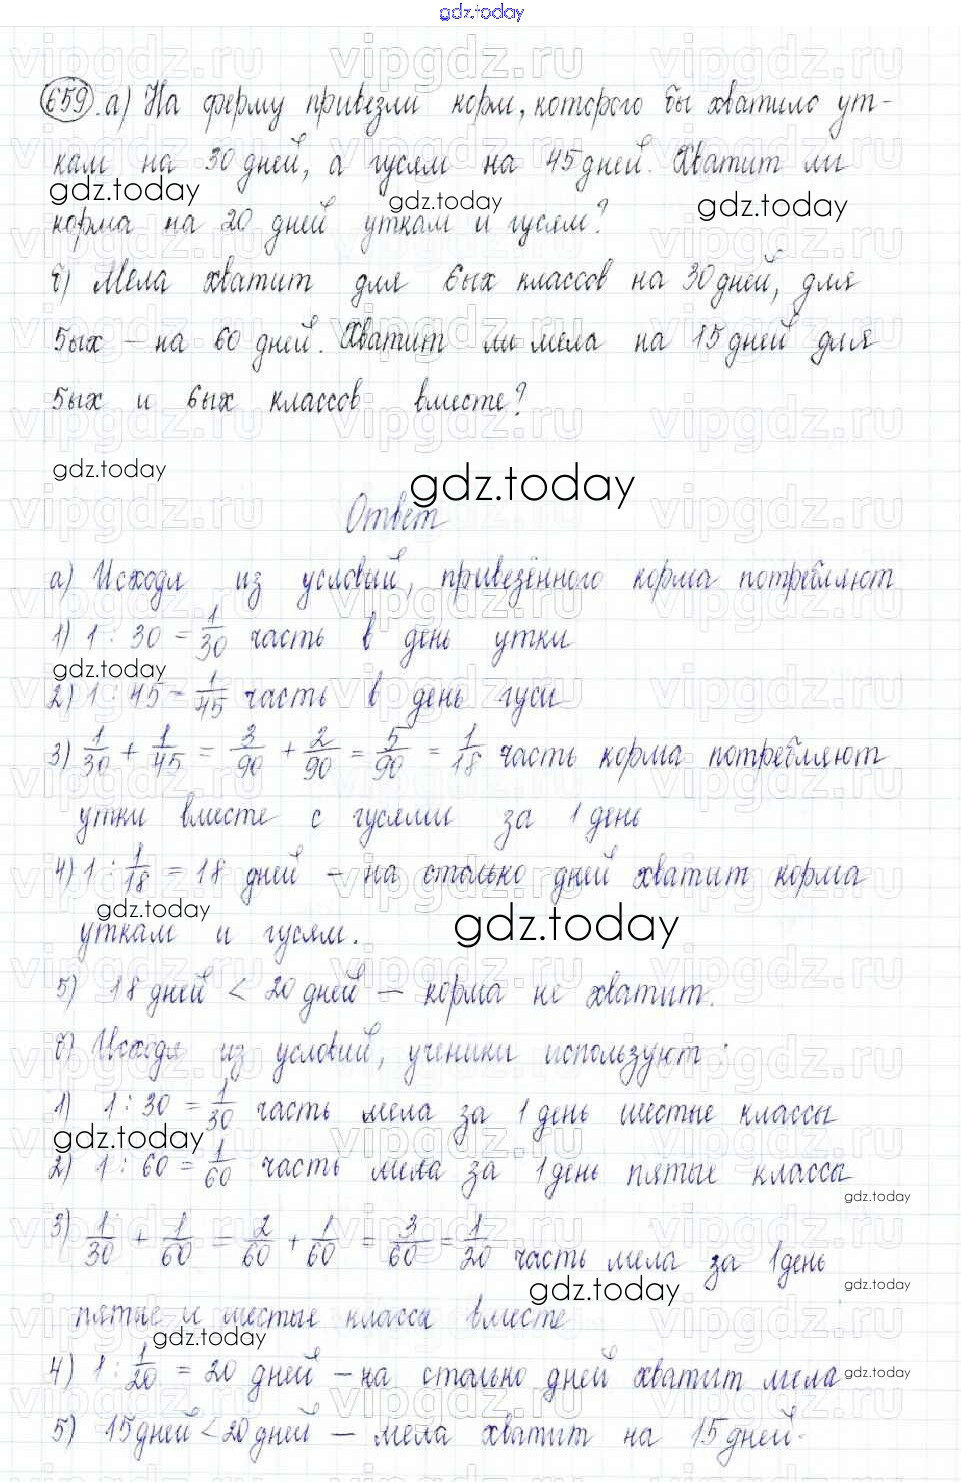 gdz.today
659. а) На ферму привезли корм, которого бы хватило ут-
кам на 30 дней, а гусям на 45 дней. Хватит ли
gdz.today gdz.today gdz.today
корма на 20 дней уткам и гусям?
б) Мела хватит для 6ых классов на 30 дней, для
5ых – на 60 дней. Хватит ли мела на 15 дней для
5ых и 6ых классов вместе?
gdz.today gdz.today
Ответ
а) Исходя из условий, привезённого корма потребляют
1) 1 : 30 = 1/30 часть в день утки
gdz.today
2) 1 : 45 = 1/45 часть в день гуси
3) 1/30 + 1/45 = 3/90 + 2/90 = 5/90 = 1/18 часть корма потребляют
утки вместе с гусями за 1 день
4) 1 : 1/18 = 18 дней – на столько дней хватит корма
gdz.today gdz.today
уткам и гусям.
5) 18 дней < 20 дней – корма не хватит.
б) Исходя из условий, ученики используют :
1) 1 : 30 = 1/30 часть мела за 1 день шестые классы
gdz.today
2) 1 : 60 = 1/60 часть мела за 1 день пятые классы
gdz.today
3) 1/30 + 1/60 = 2/60 + 1/60 = 3/60 = 1/20 часть мела за 1 день
gdz.today gdz.today
пятые и шестые классы вместе
gdz.today
4) 1 : 1/20 = 20 дней – на столько дней хватит мела
gdz.today
5) 15 дней < 20 дней – мела хватит на 15 дней.
vipgdz.ru